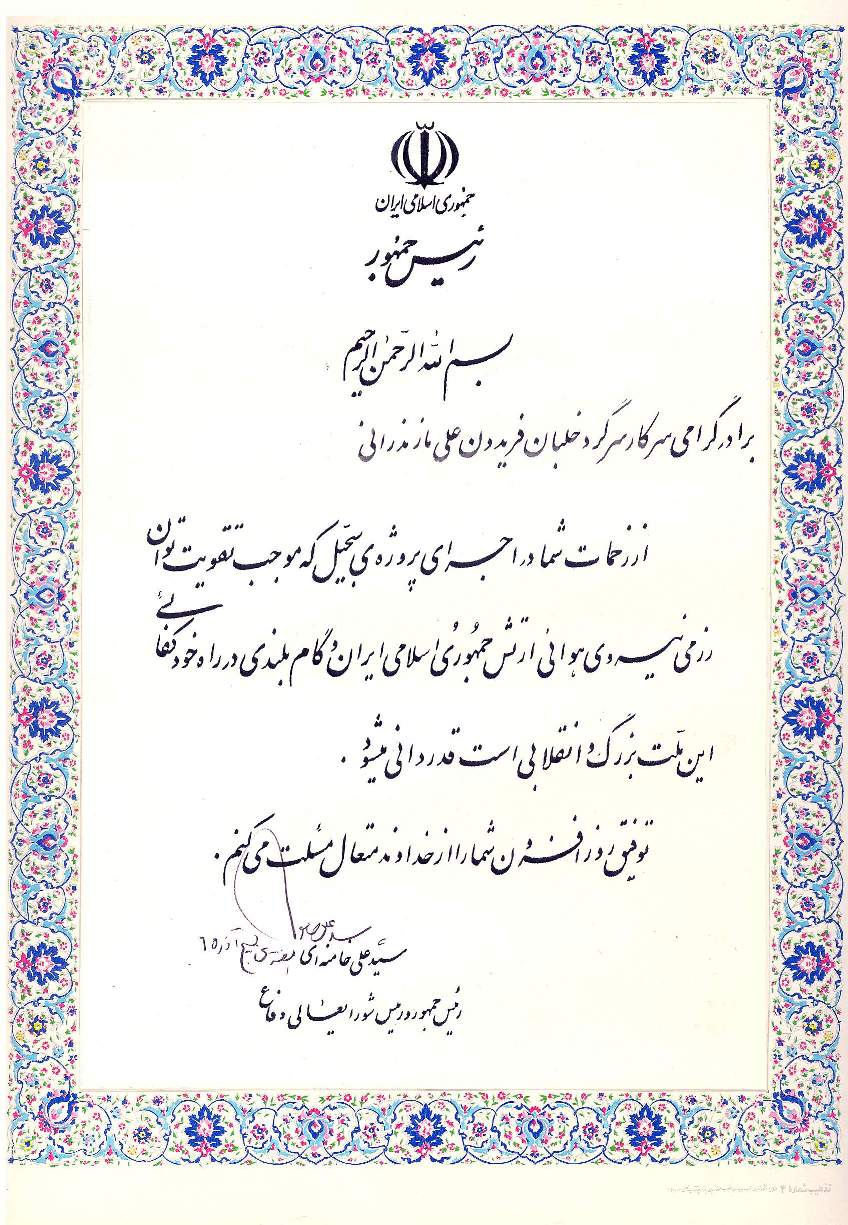 جمهوری اسلامی ایران
رئیس جمهور
بسم الله الرحمن الرحیم
برادر گرامی سرکار سرگرد خلبان فریدون علی مازندرانی
از زحمات شما در اجرای پروژه‌ی سجیل که موجب تقویت توان
رزمی نیروی هوائی ارتش جمهوری اسلامی ایران و گام بلندی در راه خودکفائی
این ملّت بزرگ و انقلابی است قدردانی میشود .
توفیق روزافزون شما را از خداوند متعال مسئلت می کنم .
سیّد علی خامنه ای هفته‌ی بسیج آذر ٦٥
رئیس جمهور و رئیس شورایعالی دفاع